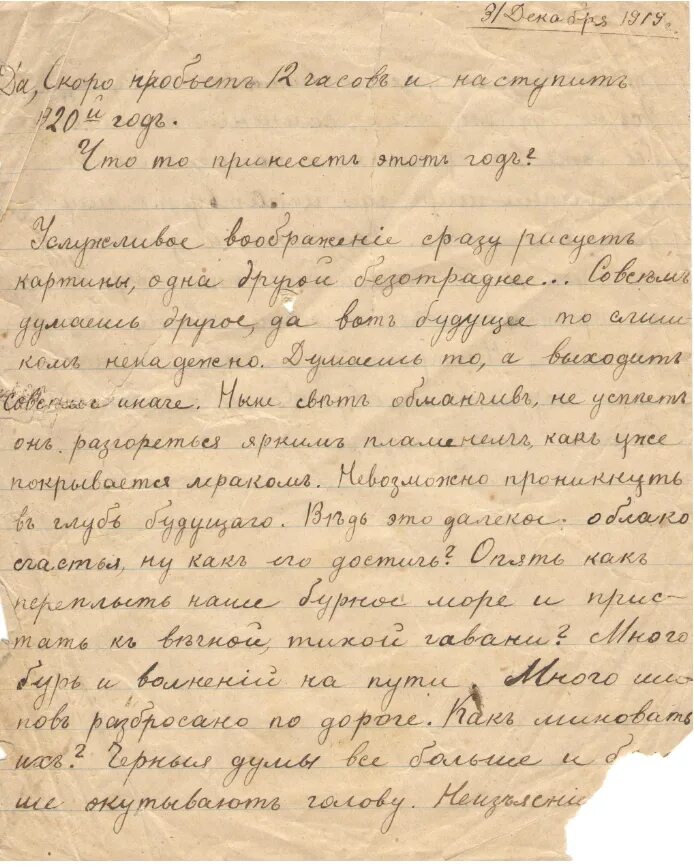 31 Декабря 1919 г.
Да, Скоро пробьетъ 12 часовъ и наступитъ
1920й годъ.
Что то принесетъ этотъ годъ?
Услужливое воображеніе сразу рисуетъ
картины, одна другой безотраднее... Совсемъ
думаешь другое, да вотъ будущее то слиш-
комъ ненадежно. Думаешь то, а выходитъ
совсемъ иначе. Ныне свѣтъ обманчивъ, не успѣетъ
онъ разгореться яркимъ пламенемъ, какъ уже
покрывается мракомъ. Невозможно проникнуть
въ глубь будущаго. Вѣдь это далекое облако
счастья, ну какъ его достичь? Опять какъ
переплыть наше бурное море и прис-
тать къ вѣчной, тихой гавани? Много
бурь и волненій на пути. Много ши-
повъ разбросано по дороге. Какъ миновать
ихъ? Черныя думы все больше и б
ше окутываютъ голову. Неизъясни